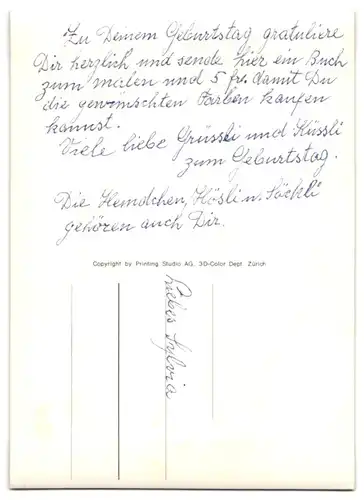 Zu Deinem Geburtstag gratuliere
Dir herzlich und sende hier ein Buch
zum malen und 5 fr. damit Du
die gewünschten Farben kaufen
kannst.
Viele liebe Grüssli und Küssli
zum Geburtstag.
Die Hemdchen, Hösli u. Söckli
gehören auch Dir.
Copyright by Printing Studio AG, 3D-Color Dept. Zürich
liebes Sylvia